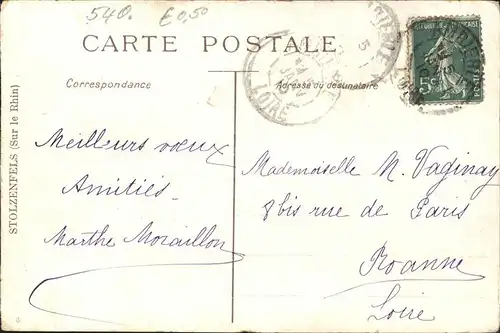 540. £0,50
CARTE POSTALE
Correspondance
Adresse du destinataire
STOLZENFELS (Sur le Rhin)
Meilleurs vœux
Amitiés
Marthe Moraillon
Mademoiselle M. Vaginay
8 bis rue de Paris
Roanne
Loire
5c
LOIRE